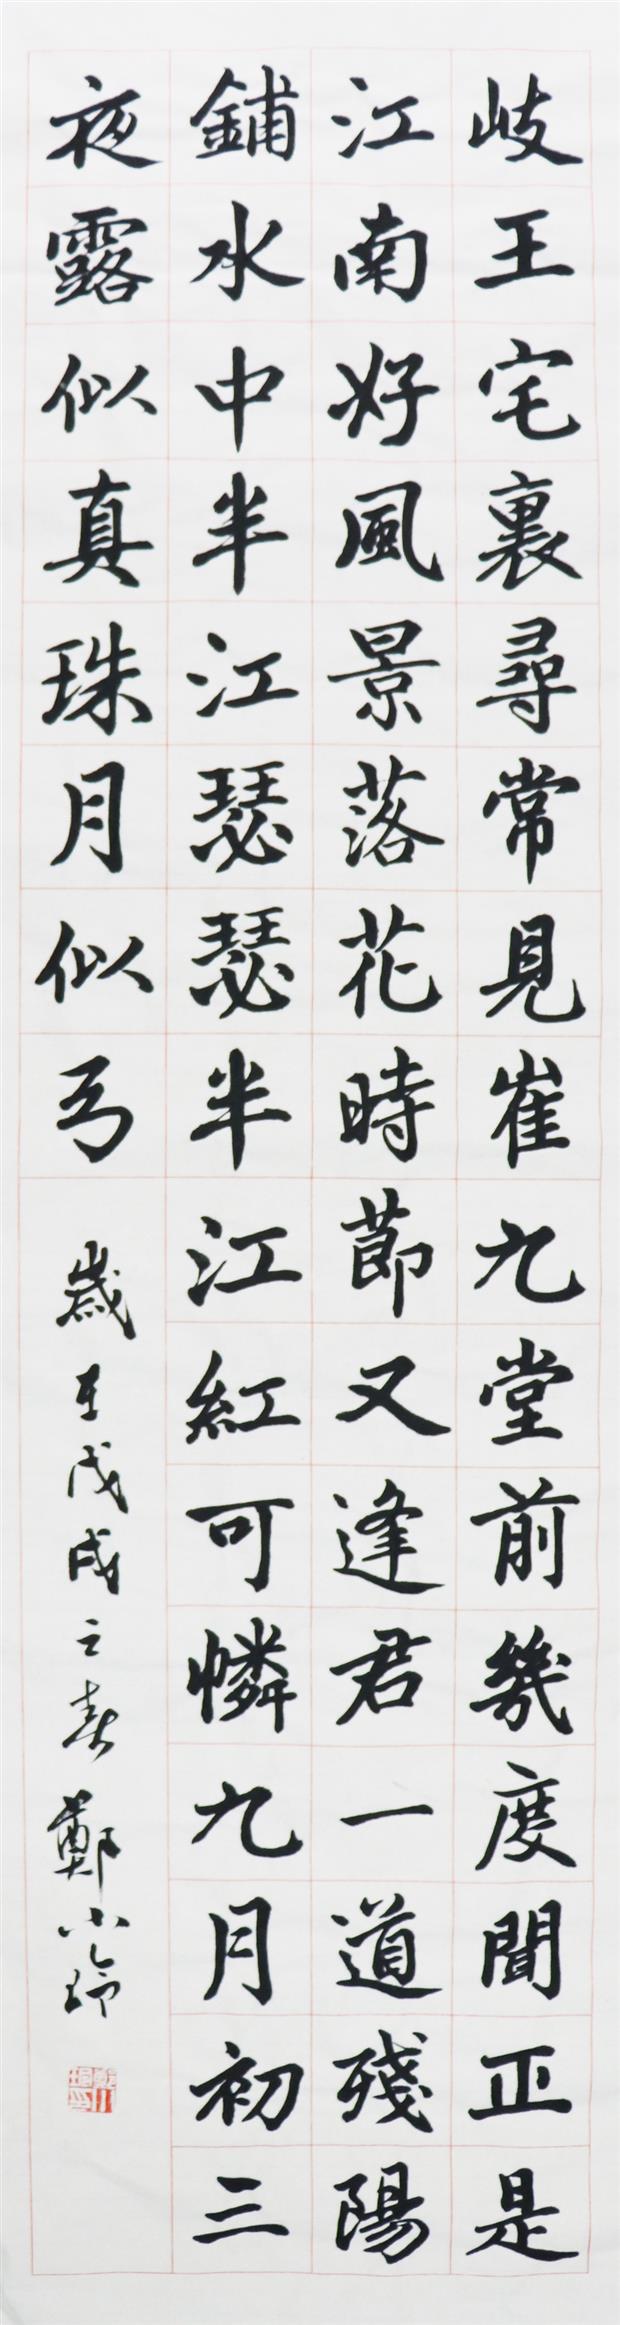 歧王宅裏尋常見崔九堂前幾度聞正是
江南好風景落花時節又逢君一道殘陽
鋪水中半江瑟瑟半江紅可憐九月初三
夜露似真珠月似弓
歲在戊戌之春鄭小